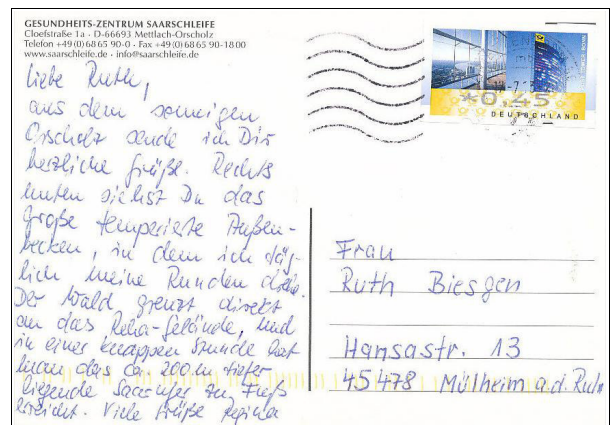 GESUNDHEITS-ZENTRUM SAARSCHLEIFE
Cloefstraße 1a · D-66693 Mettlach-Orscholz
Telefon +49 (0) 68 65 90-0 · Fax +49 (0) 68 65 90-18 00
www.saarschleife.de · info@saarschleife.de
Liebe Ruth,
aus dem sonnigen
Orscholz sende ich Dir
herzliche Grüße. Rechts
unten siehst Du das
große temperierte Außen-
becken, in dem ich täg-
lich meine Runden drehe.
Der Wald grenzt direkt
an das Reha-Gelände, und
in einer knappen Stunde hat
man das ca. 200 m tiefer
liegende Saarufer zu Fuß
erreicht. Viele Grüße Regina
*0,45
DEUTSCHLAND
Frau
Ruth Biesgen
Hansastr. 13
45478 Mülheim a.d. Ruhr